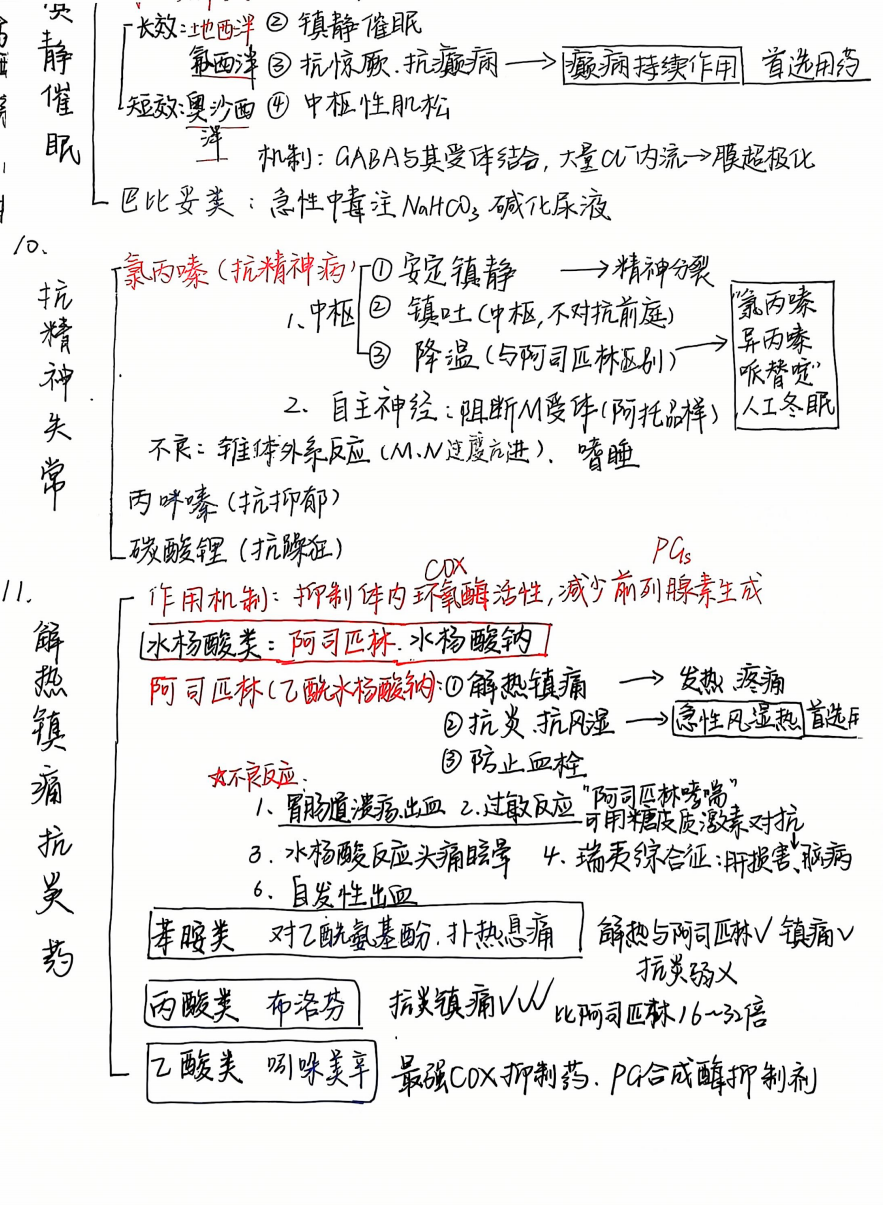 镇静催眠
长效:地西泮 ② 镇静催眠
氟西泮 ③ 抗惊厥、抗癫痫 → 癫痫持续作用 首选用药
短效:奥沙西泮 ④ 中枢性肌松
机制:GABA与其受体结合,大量Cl⁻内流→膜超极化
巴比妥类:急性中毒注NaHCO₃碱化尿液
10、抗精神失常
氯丙嗪(抗精神病)
1、中枢
① 安定镇静 → 精神分裂
② 镇吐(中枢,不对抗前庭)
③ 降温(与阿司匹林区别) →
"氯丙嗪
异丙嗪
哌替啶"
人工冬眠
2、自主神经:阻断M受体(阿托品样)
不良:锥体外系反应(M、N过度亢进)、嗜睡
丙咪嗪(抗抑郁)
碳酸锂(抗躁狂)
11、解热镇痛抗炎药
COX PGs
作用机制:抑制体内环氧酶活性,减少前列腺素生成
水杨酸类:阿司匹林、水杨酸钠
阿司匹林(乙酰水杨酸钠):① 解热镇痛 → 发热、疼痛
② 抗炎、抗风湿 → 急性风湿热 首选用
③ 防止血栓
☆不良反应:
1、胃肠道溃疡、出血 2、过敏反应 "阿司匹林哮喘"
可用糖皮质激素对抗
3、水杨酸反应头痛眩晕 4、瑞夷综合征:肝损害、脑病
6、自发性出血
苯胺类 对乙酰氨基酚、扑热息痛 解热与阿司匹林√ 镇痛√
抗炎弱×
丙酸类 布洛芬 抗炎镇痛√√√ 比阿司匹林16~32倍
乙酸类 吲哚美辛 最强COX抑制药、PG合成酶抑制剂